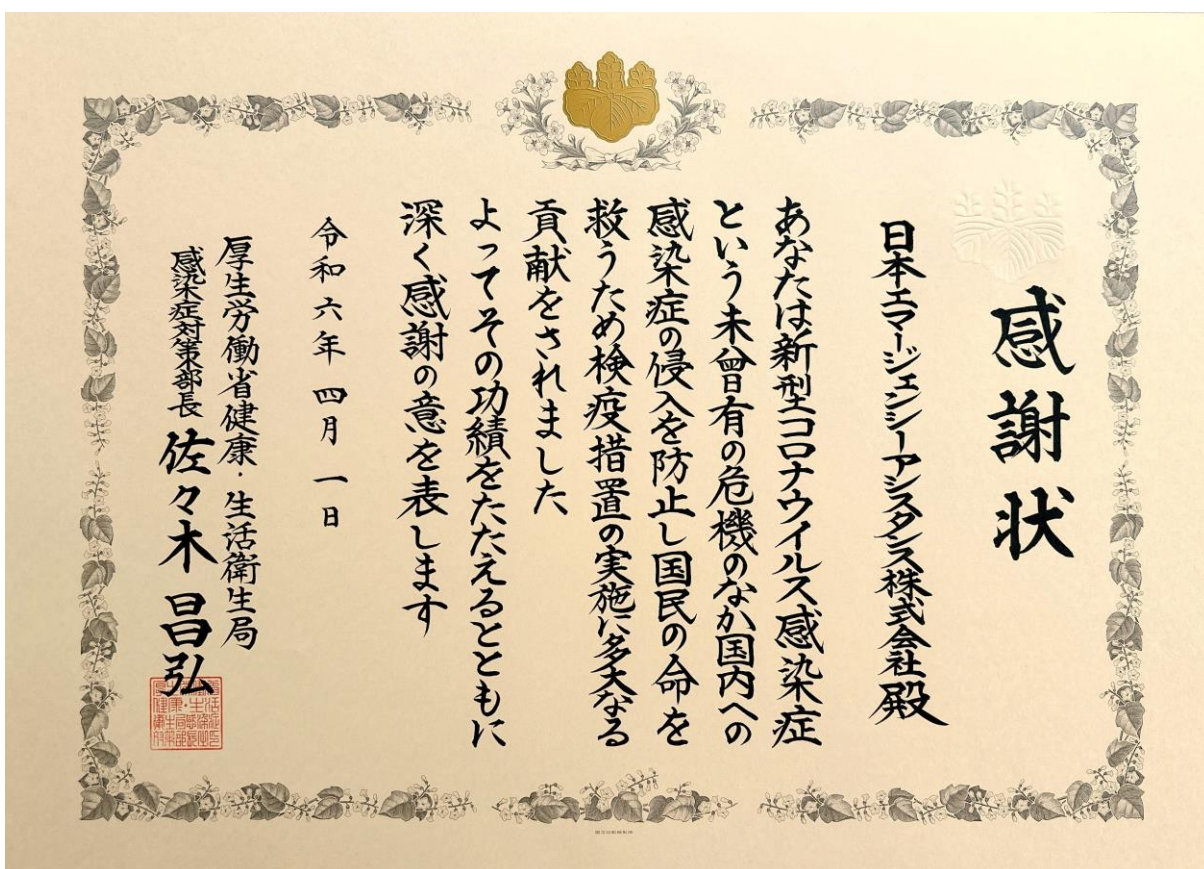 感謝状
日本エマージェンシーアシスタンス株式会社殿
あなたは新型コロナウイルス感染症
という未曾有の危機のなか国内への
感染症の侵入を防止し国民の命を
救うため検疫措置の実施に多大なる
貢献をされました
よってその功績をたたえるとともに
深く感謝の意を表します
令和六年四月一日
厚生労働省健康・生活衛生局
感染症対策部長 佐々木昌弘